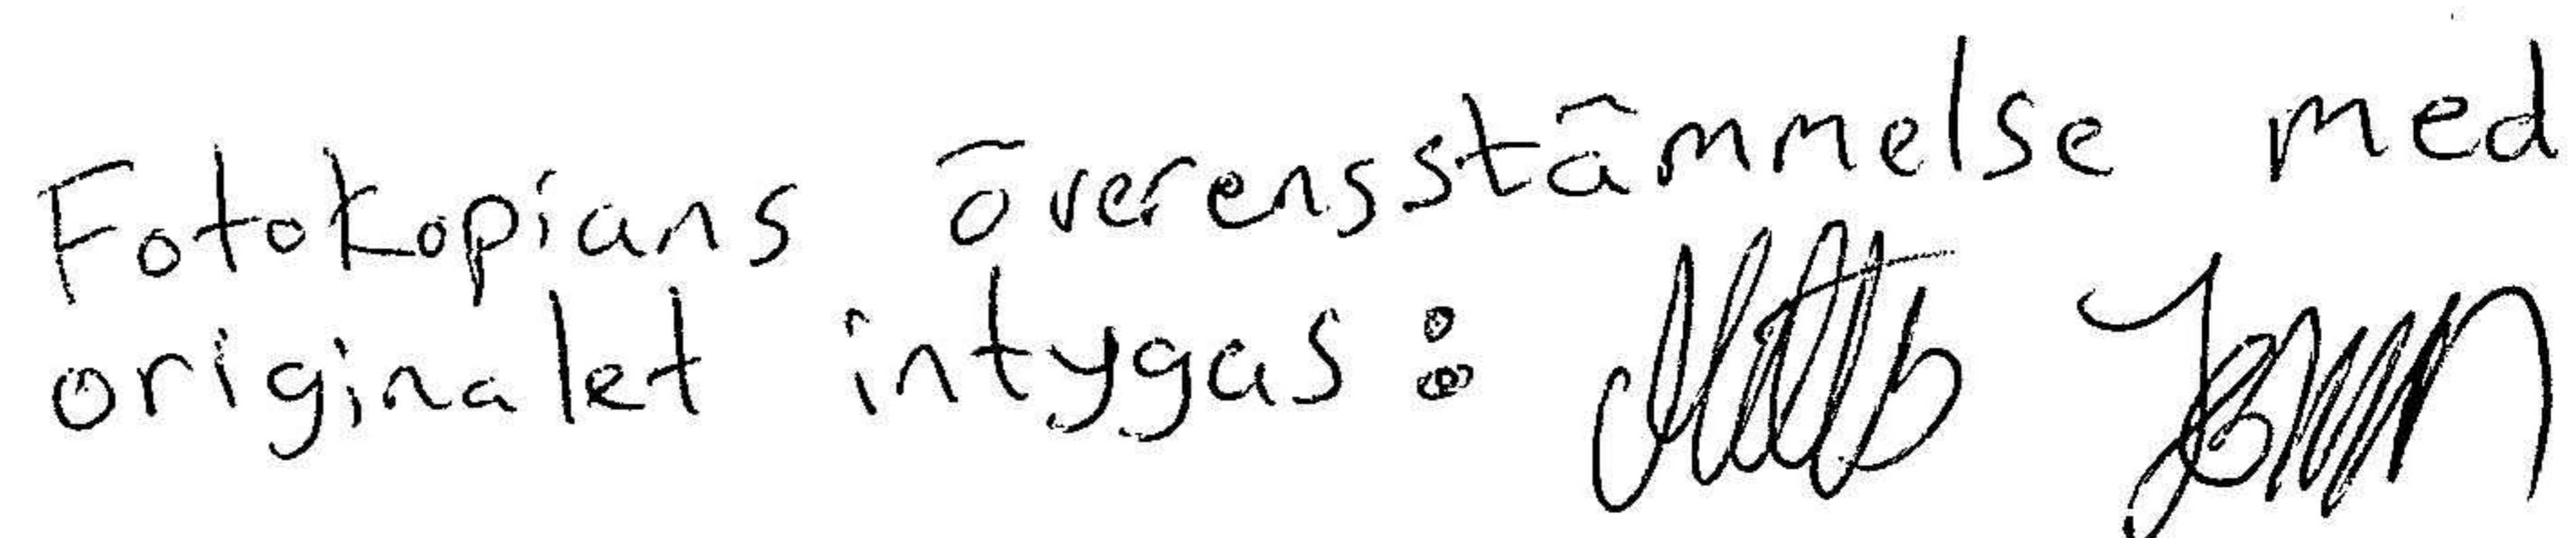 Fotokopians överensstämmelse med
originalet intygas: